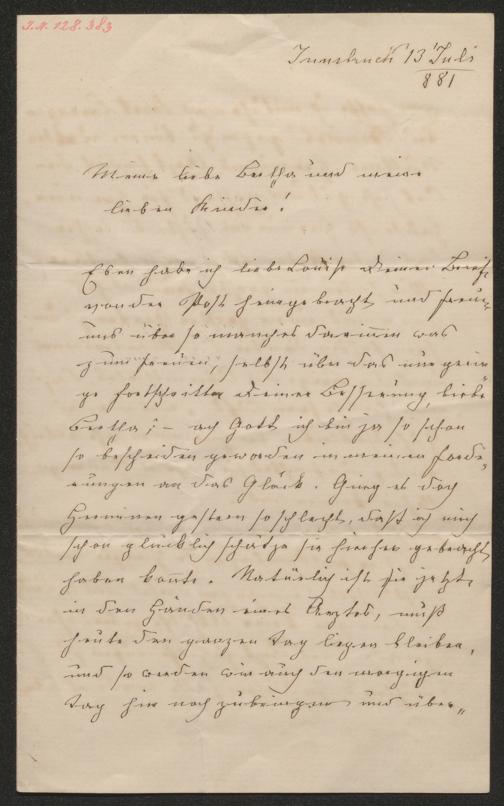 I.N. 128.383
Innsbruck 13 Juli
881
Meine liebe Bertha und meine
lieben Kinder!
Eben habe ich liebe Louise Deinen Brief
von der Post heimgebracht, und freue
uns über so manches darinnen was
zum freuen, selbst über das nur gerin
ge fortschritte Deiner Besserung, liebe
Bertha; – ach Gott ich bin ja so schon
so bescheiden geworden in meinen Forde„
rungen an das Glück. Ging es doch
Herminen gestern so schlecht, daß ich mich
schon glücklich schätze sie hierher gebracht
haben konnte. Natürlich ist sie jetzt
in den Händen eines Arztes, muß
heute den ganzen Tag liegen bleiben,
und so werden wir auch den morgigen
Tag hier noch zubringen und über„